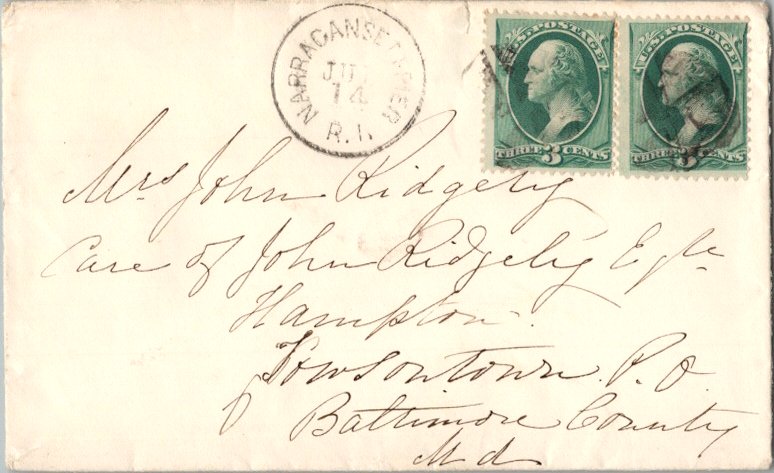 NARRAGANSETT PIER
JUL
14
R.I.
U.S. POSTAGE
THREE 3 CENTS
U.S. POSTAGE
THREE 3 CENTS
Mrs John Ridgely
Care of John Ridgely Eqre
Hampton.
Towsontown. P.O.
Baltimore County
Md